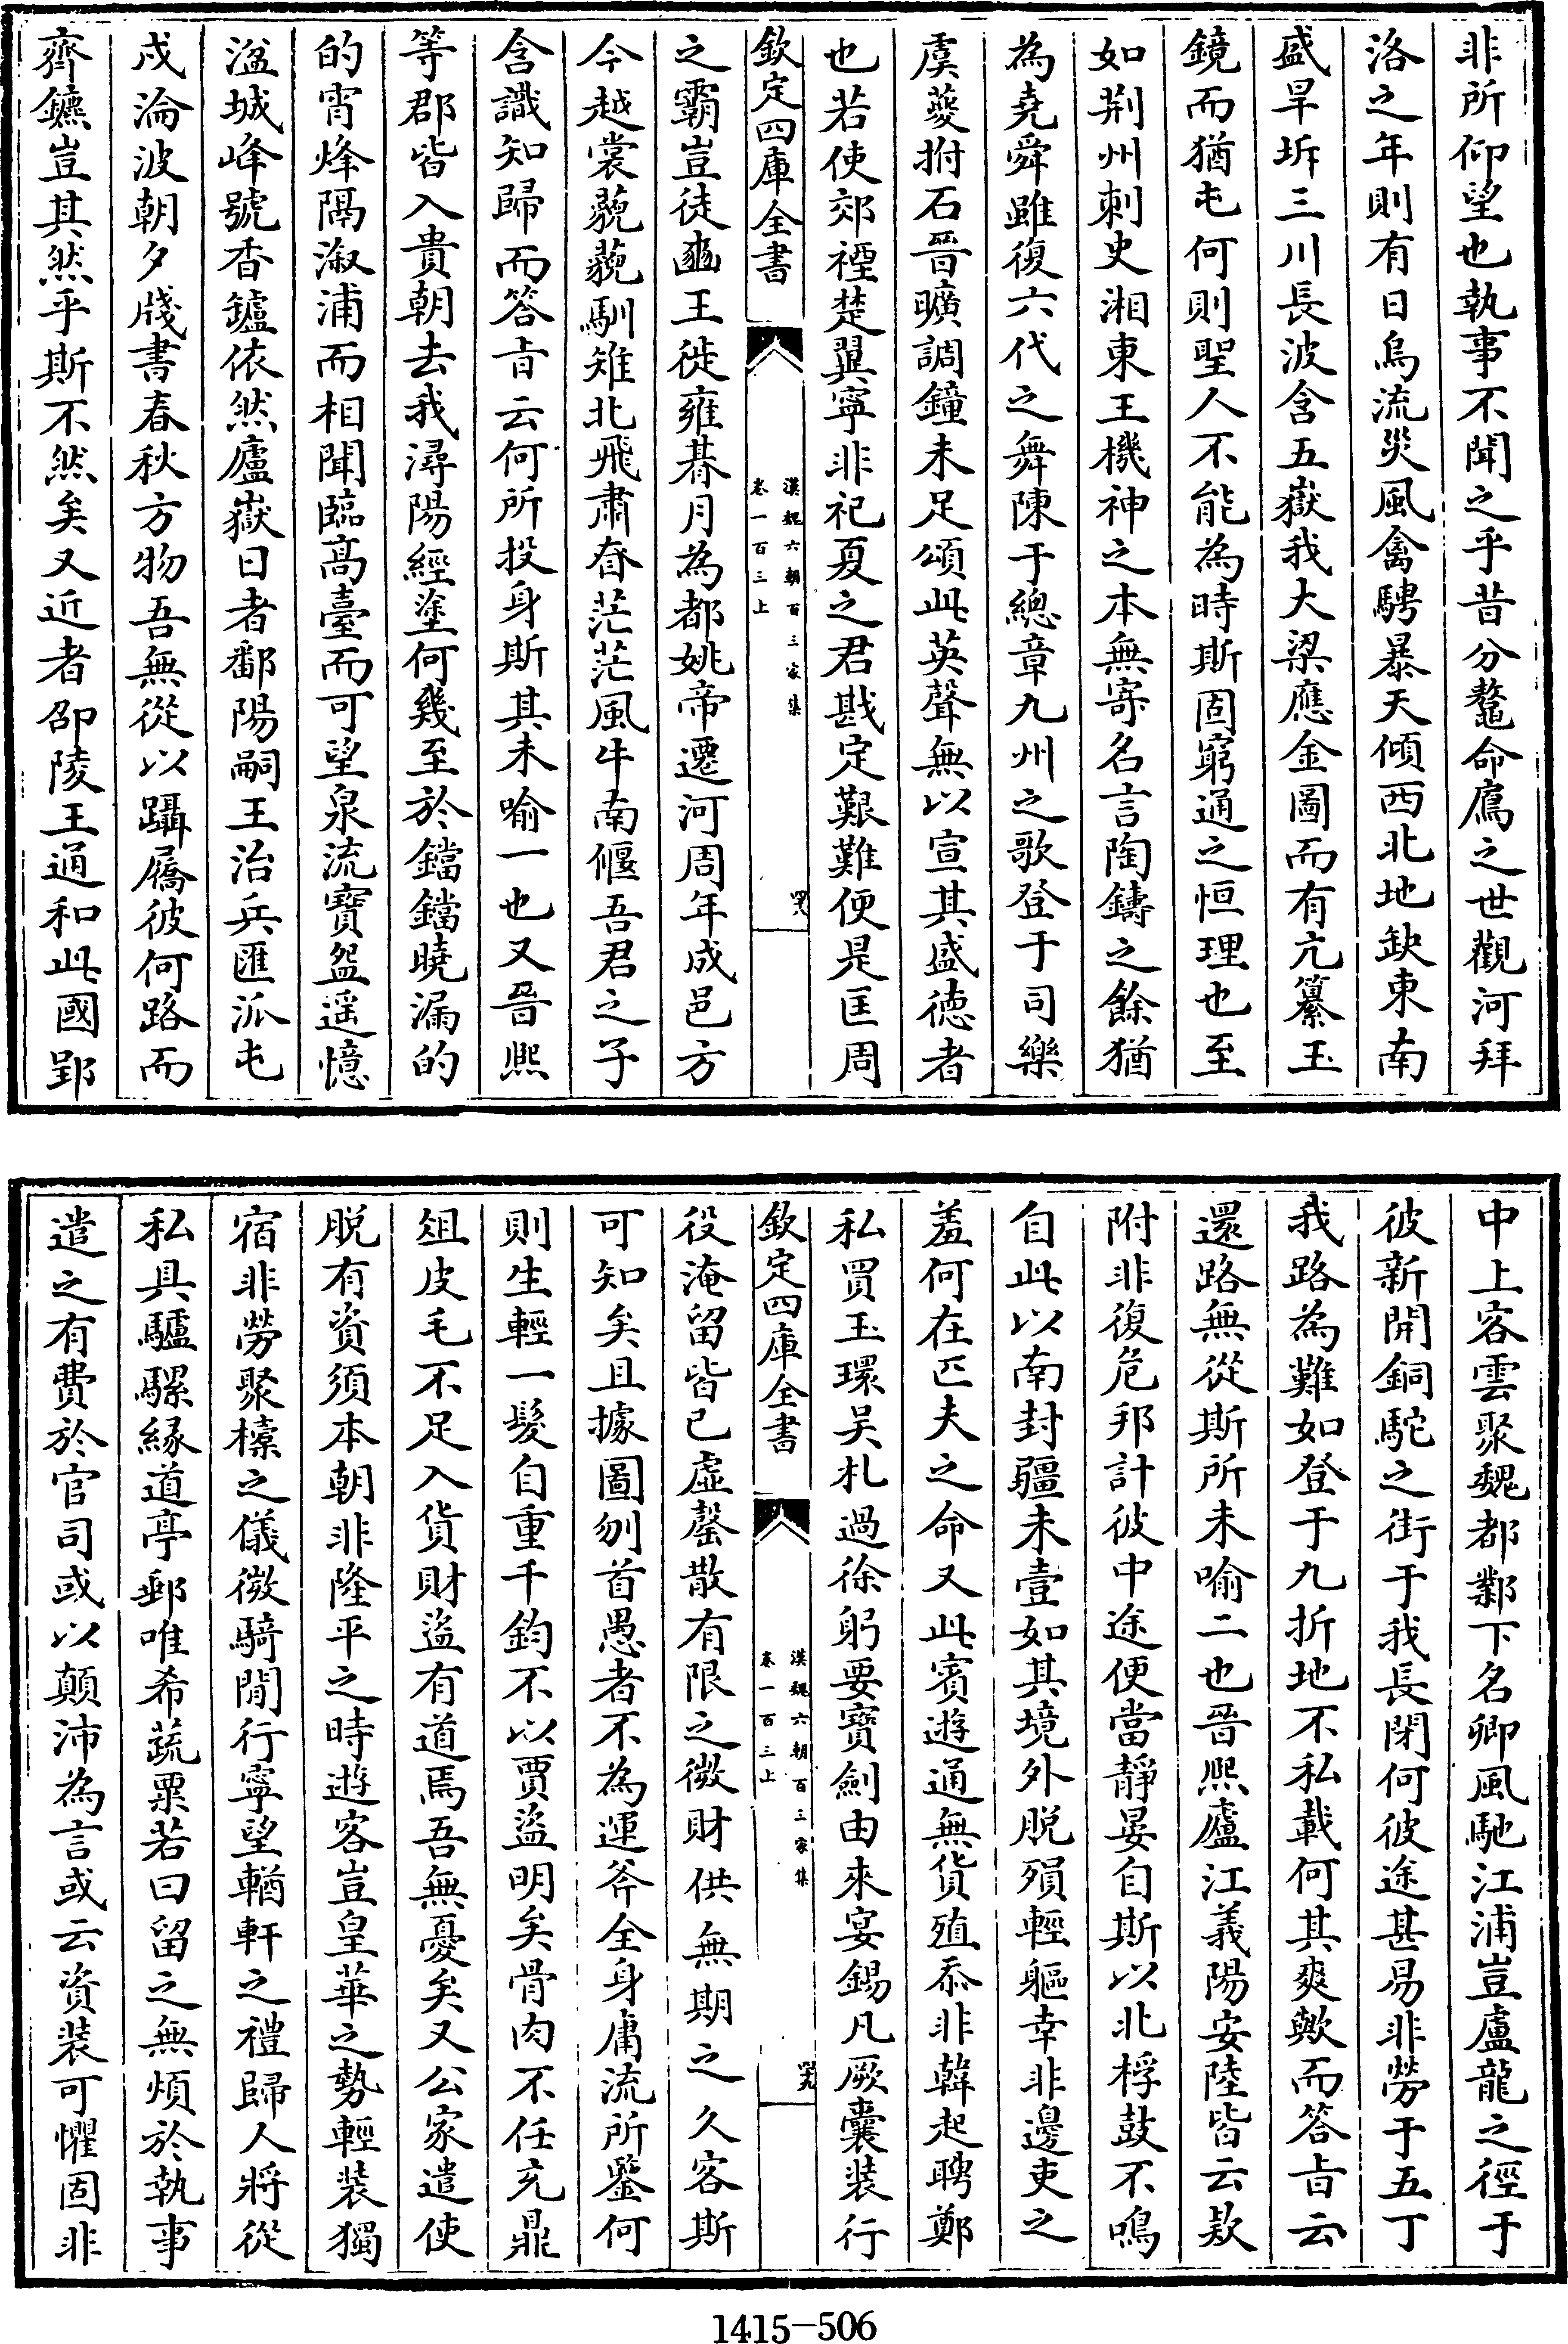 非所仰望也執事不聞之乎昔分鼇命屬之世觀河拜
洛之年則有日烏流災風禽騁暴天傾西北地缺東南
盛旱坼三川長波含五嶽我大梁應金圖而有亢纂玉
鏡而猶屯何則聖人不能為時斯固窮通之恒理也至
如荆州刺史湘東王機神之本無寄名言陶鑄之餘猶
為堯舜雖復六代之舞陳于總章九州之歌登于司樂
虞夔拊石晉曠調鐘未足頌此英聲無以宣其盛德者
也若使郊禋楚翼寧非祀夏之君戡定艱難便是匡周
欽定四庫全書
漢魏六朝百三家集
卷一百三上
四八
之霸豈徒豳王徙雍朞月為都姚帝遷河周年成邑方
今越裳藐藐馴雉北飛肅眘茫茫風牛南偃吾君之子
含識知歸而答㫖云何所投身斯其未喻一也又晉熙
等郡皆入貴朝去我潯陽經塗何幾至於鐺鐺曉漏的
的宵烽隔溆浦而相聞臨髙臺而可望泉流寶盌遥憶
湓城峰號香鑪依然廬嶽日者鄱陽嗣王治兵匯派屯
戍淪波朝夕牋書春秋方物吾無從以躡屩彼何路而
齊鑣豈其然乎斯不然矣又近者邵陵王通和此國郢
中上客雲聚魏都鄴下名卿風馳江浦豈盧龍之徑于
彼新開銅駝之街于我長閉何彼途甚易非勞于五丁
我路為難如登于九折地不私載何其爽歟而答㫖云
還路無從斯所未喻二也晉熙廬江義陽安陸皆云欵
附非復危邦計彼中途便當靜晏自斯以北桴鼓不鳴
自此以南封疆未壹如其境外脱殞輕軀幸非邊吏之
羞何在匹夫之命又此賓遊通無貨殖忝非韓起聘鄭
私買玉環吴札過徐躬要寶劍由來宴錫凡厥囊装行
欽定四庫全書
漢魏六朝百三家集
卷一百三上
四九
役淹留皆已虚罄散有限之微財供無期之久客斯
可知矣且據圖刎首愚者不為運斧全身庸流所鑒何
則生輕一髮自重千鈞不以賈盜明矣骨肉不任充鼎
俎皮毛不足入貨財盜有道焉吾無憂矣又公家遣使
脱有資須本朝非隆平之時遊客豈皇華之勢輕装獨
宿非勞聚橐之儀微騎閒行寧望輶軒之禮歸人將從
私具驢騾緣道亭郵唯希蔬粟若曰留之無煩於執事
遣之有費於官司或以顛沛為言或云資装可懼固非
1415-506